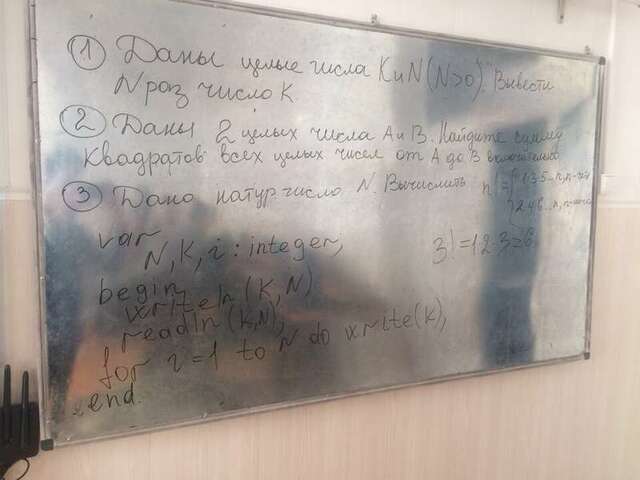 ① Даны целые числа К и N (N>0). Вывести
N раз число К.
② Даны 2 целых числа А и В. Найдите сумму
Квадратов всех целых чисел от А до В включительно
③ Дано натур число N. Вычислить n! = { 1·3·5...n, n-
2·4·6...n, n-
3! = 1·2·3=6
var
N, K, i : integer;
begin
writeln (K, N)
readln (K,N);
for i=1 to N do write(K);
end.